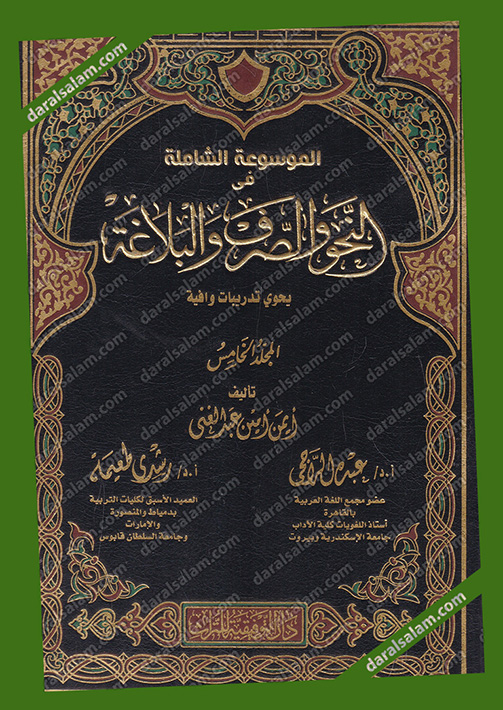 daralsalam.com
الموسوعة الشاملة
فى
النحو والصرف والبلاغة
يحوي تدريبات وافية
المجلد الخامس
تأليف
أيمن أمين عبد الغني
أ.د/ عبده الراجحي
عضو مجمع اللغة العربية
بالقاهرة
أستاذ اللغويات كلية الآداب
جامعة الإسكندرية وبيروت
أ.د/ رشدي طعيمة
العميد الأسبق لكليات التربية
بدمياط والمنصورة
والإمارات
وجامعة السلطان قابوس
دار التوفيقية للتراث
daralsalam.com